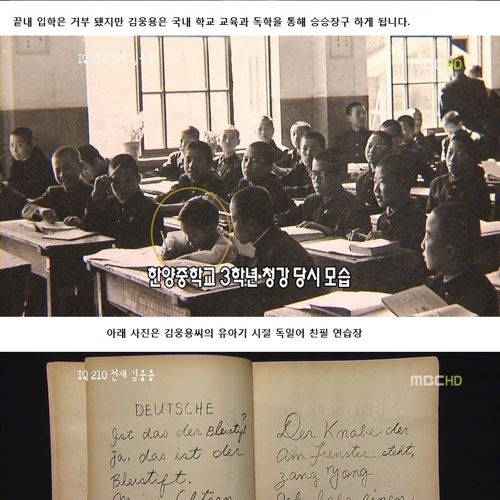 끝내 입학은 거부 됐지만 김웅용은 국내 학교 교육과 독학을 통해 승승장구 하게 됩니다.
IQ 210 천재 김웅용
MBC HD
한양중학교 3학년 청강 당시 모습
아래 사진은 김웅용씨의 유아기 시절 독일어 친필 연습장
IQ 210 천재 김웅용
MBC HD
DEUTSCHE
Ist das der Bleistift?
Ja, das ist der
Bleistift.
Der Knabe der
am Fenster steht,
zang Yong.
Ich habe einen